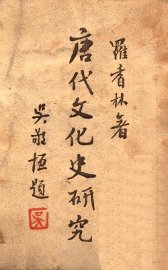 羅香林著
唐代文化史研究
吳敬恆題
吳